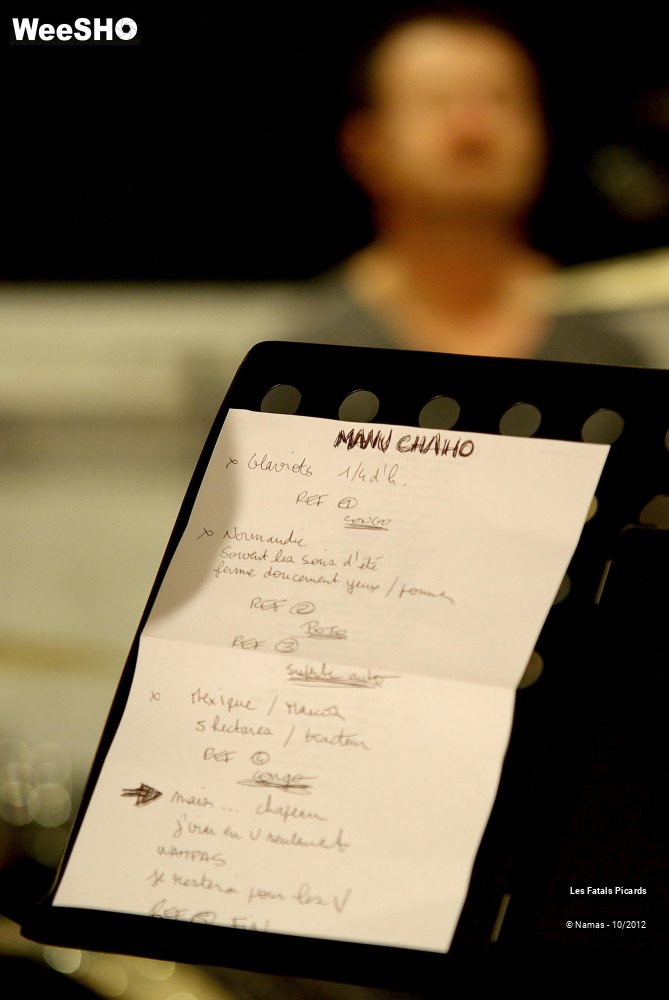 WeeSHO
MANU CHAHO
x Glaviots 1/4 d'h.
REF ①
CONGO
x Normandie
Souvent les soirs d'été
ferme doucement yeux / pommier
REF ②
POTO
REF ③
superbe auto
x Mexique / Marcos
5 hectares / tracteur
REF ④
CONGO
➔ mais ... chapeau
j'irai en V seulement
WAMPAS
je resterai pour les V
REF FIN
Les Fatals Picards
© Namas - 10/2012